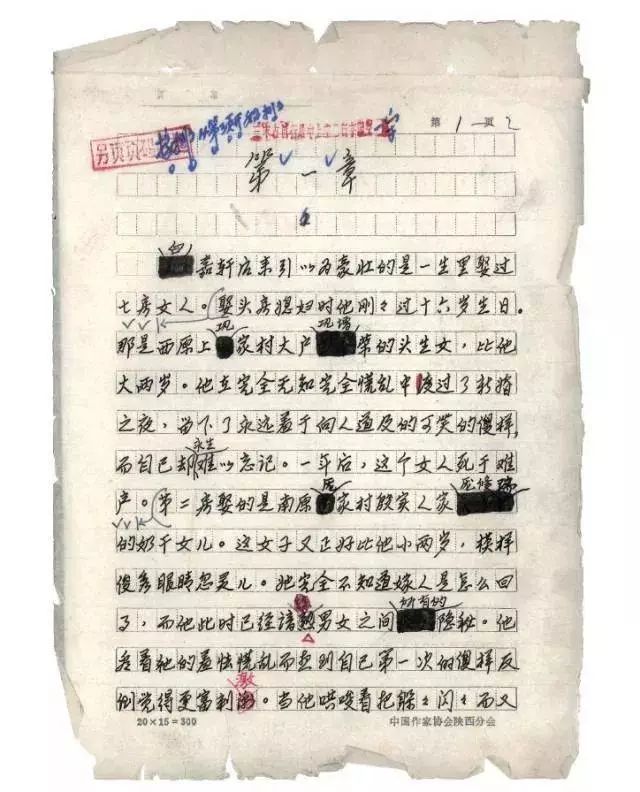 第 1 页 2
第一章
白嘉轩后来引以为豪壮的是一生里娶过
七房女人。娶头房媳妇时他刚々过十六岁生日。
那是西原上巩家村大户巩增荣的头生女，比他
大两岁。他在完全无知完全慌乱中度过了新婚
之夜，留下了永远羞于向人道及的可笑的傻样，
而自己却永生难以忘记。一年后，这个女人死于难
产。第二房娶的是南原庞家村殷实人家庞修瑞
的奶干女儿。这女子又正好比他小两岁，模样
俊秀眼睛忽灵儿。她完全不知道嫁人是怎么回
事，而他此时已经谙熟男女之间所有的隐秘。他
看着她的羞怯慌乱而想到自己第一次的傻样反
倒觉得更富刺激。当他哄唆着把躲々闪々而又
20×15=300 中国作家协会陕西分会